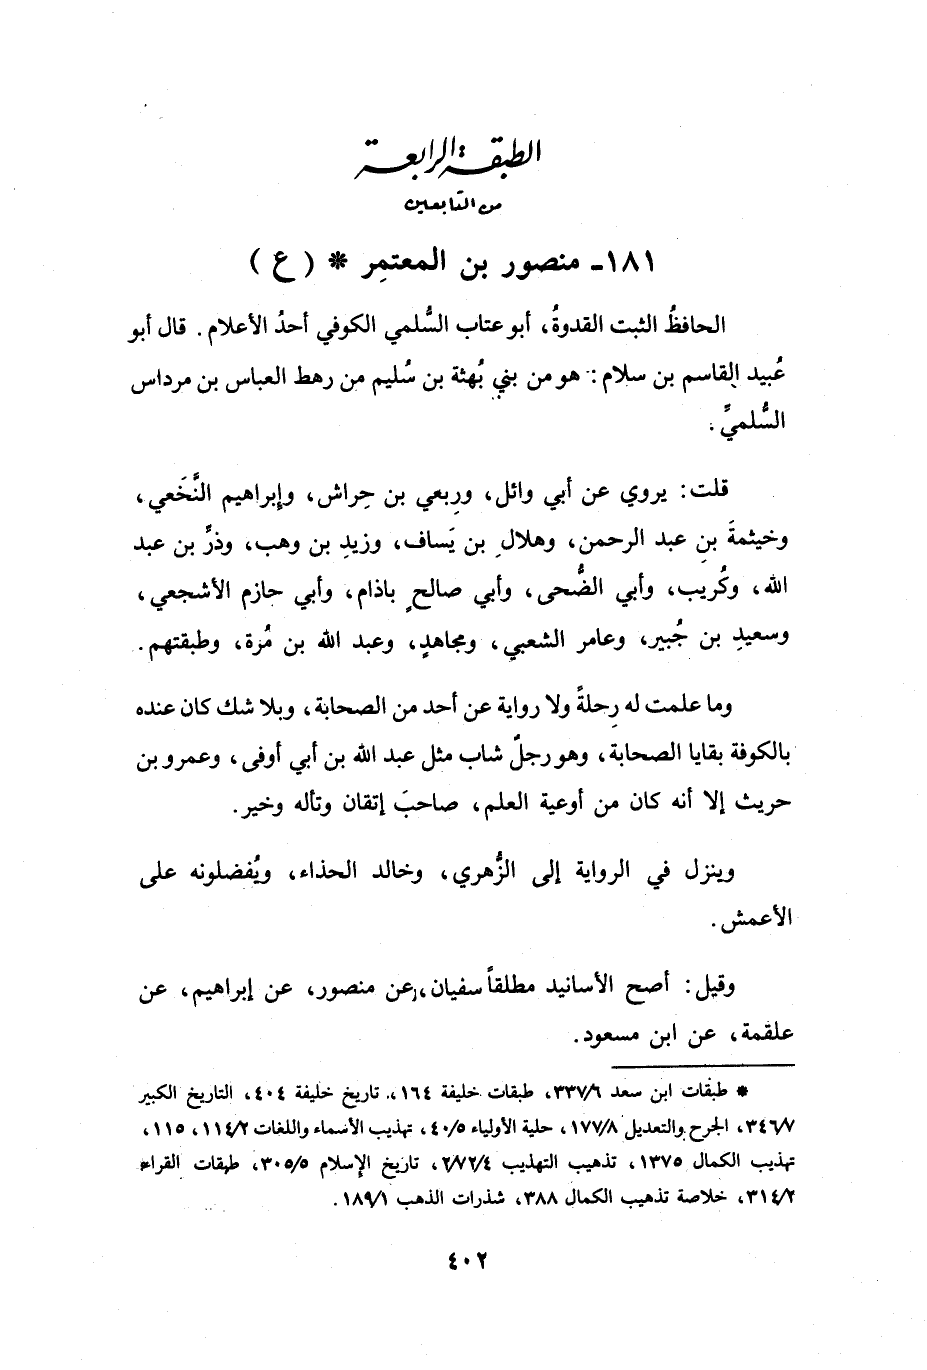 الطبقة الرابعة
من التابعين
١٨١- منصور بن المعتمِر * ( ع )
الحافظُ الثبت القدوةُ، أبو عتاب السُّلمي الكوفي أحدُ الأعلام. قال أبو
عُبيد القاسم بن سلام: هو من بني بُهثة بن سُليم من رهط العباس بن مرداس
السُّلميِّ.
قلت: يروي عن أبي وائل، ورِبعي بن حِراش، وإبراهيم النَّخَعي،
وخيثمةَ بنِ عبد الرحمن، وهلالِ بن يَساف، وزيدِ بن وهب، وذرِّ بن عبد
الله، وكُريب، وأبي الضُّحى، وأبي صالحٍ باذام، وأبي حازم الأشجعي،
وسعيدِ بن جُبير، وعامر الشعبي، ومجاهدٍ، وعبد الله بن مُرة، وطبقتهم.
وما علمت له رِحلةً ولا رواية عن أحد من الصحابة، وبلا شك كان عنده
بالكوفة بقايا الصحابة، وهو رجلٌ شاب مثل عبد الله بن أبي أوفى، وعمرو بن
حريث إلا أنه كان من أوعية العلم، صاحبَ إتقان وتأله وخير.
وينزل في الرواية إلى الزُّهري، وخالد الحذاء، ويُفضلونه على
الأعمش.
وقيل: أصح الأسانيد مطلقاً سفيان، عن منصور، عن إبراهيم، عن
علقمة، عن ابن مسعود.
* طبقات ابن سعد ٣٣٧/٦، طبقات خليفة ١٦٤، تاريخ خليفة ٤٠٤، التاريخ الكبير
٣٤٦/٧، الجرح والتعديل ١٧٧/٨، حلية الأولياء ٤٠/٥، تهذيب الأسماء واللغات ١١٤/٢، ١١٥،
تهذيب الكمال ١٣٧٥، تذهيب التهذيب ٢/٧٢/٤، تاريخ الإسلام ٣٠٥/٥، طبقات القراء
٣١٤/٢، خلاصة تذهيب الكمال ٣٨٨، شذرات الذهب ١٨٩/١.
٤٠٢